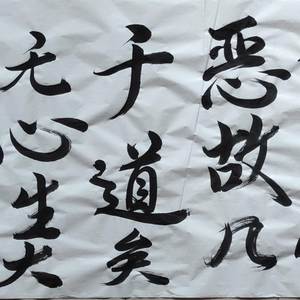 恶故几
于道矣
无心生大